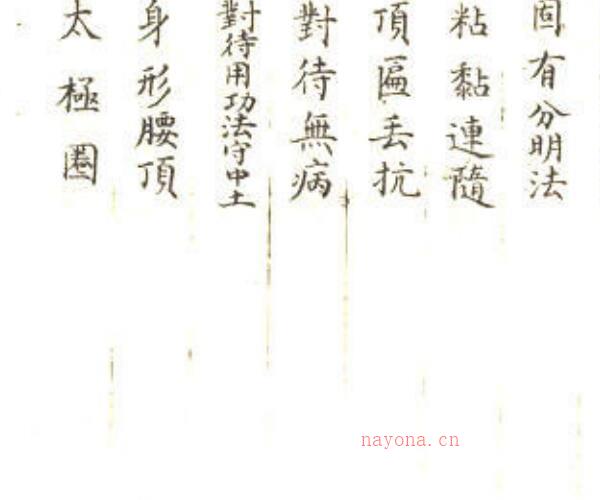 固有分明法
粘黏連隨
頂匾丢抗
對待無病
對待用功法守中土
身形腰頂
太極圈
nayona.cn